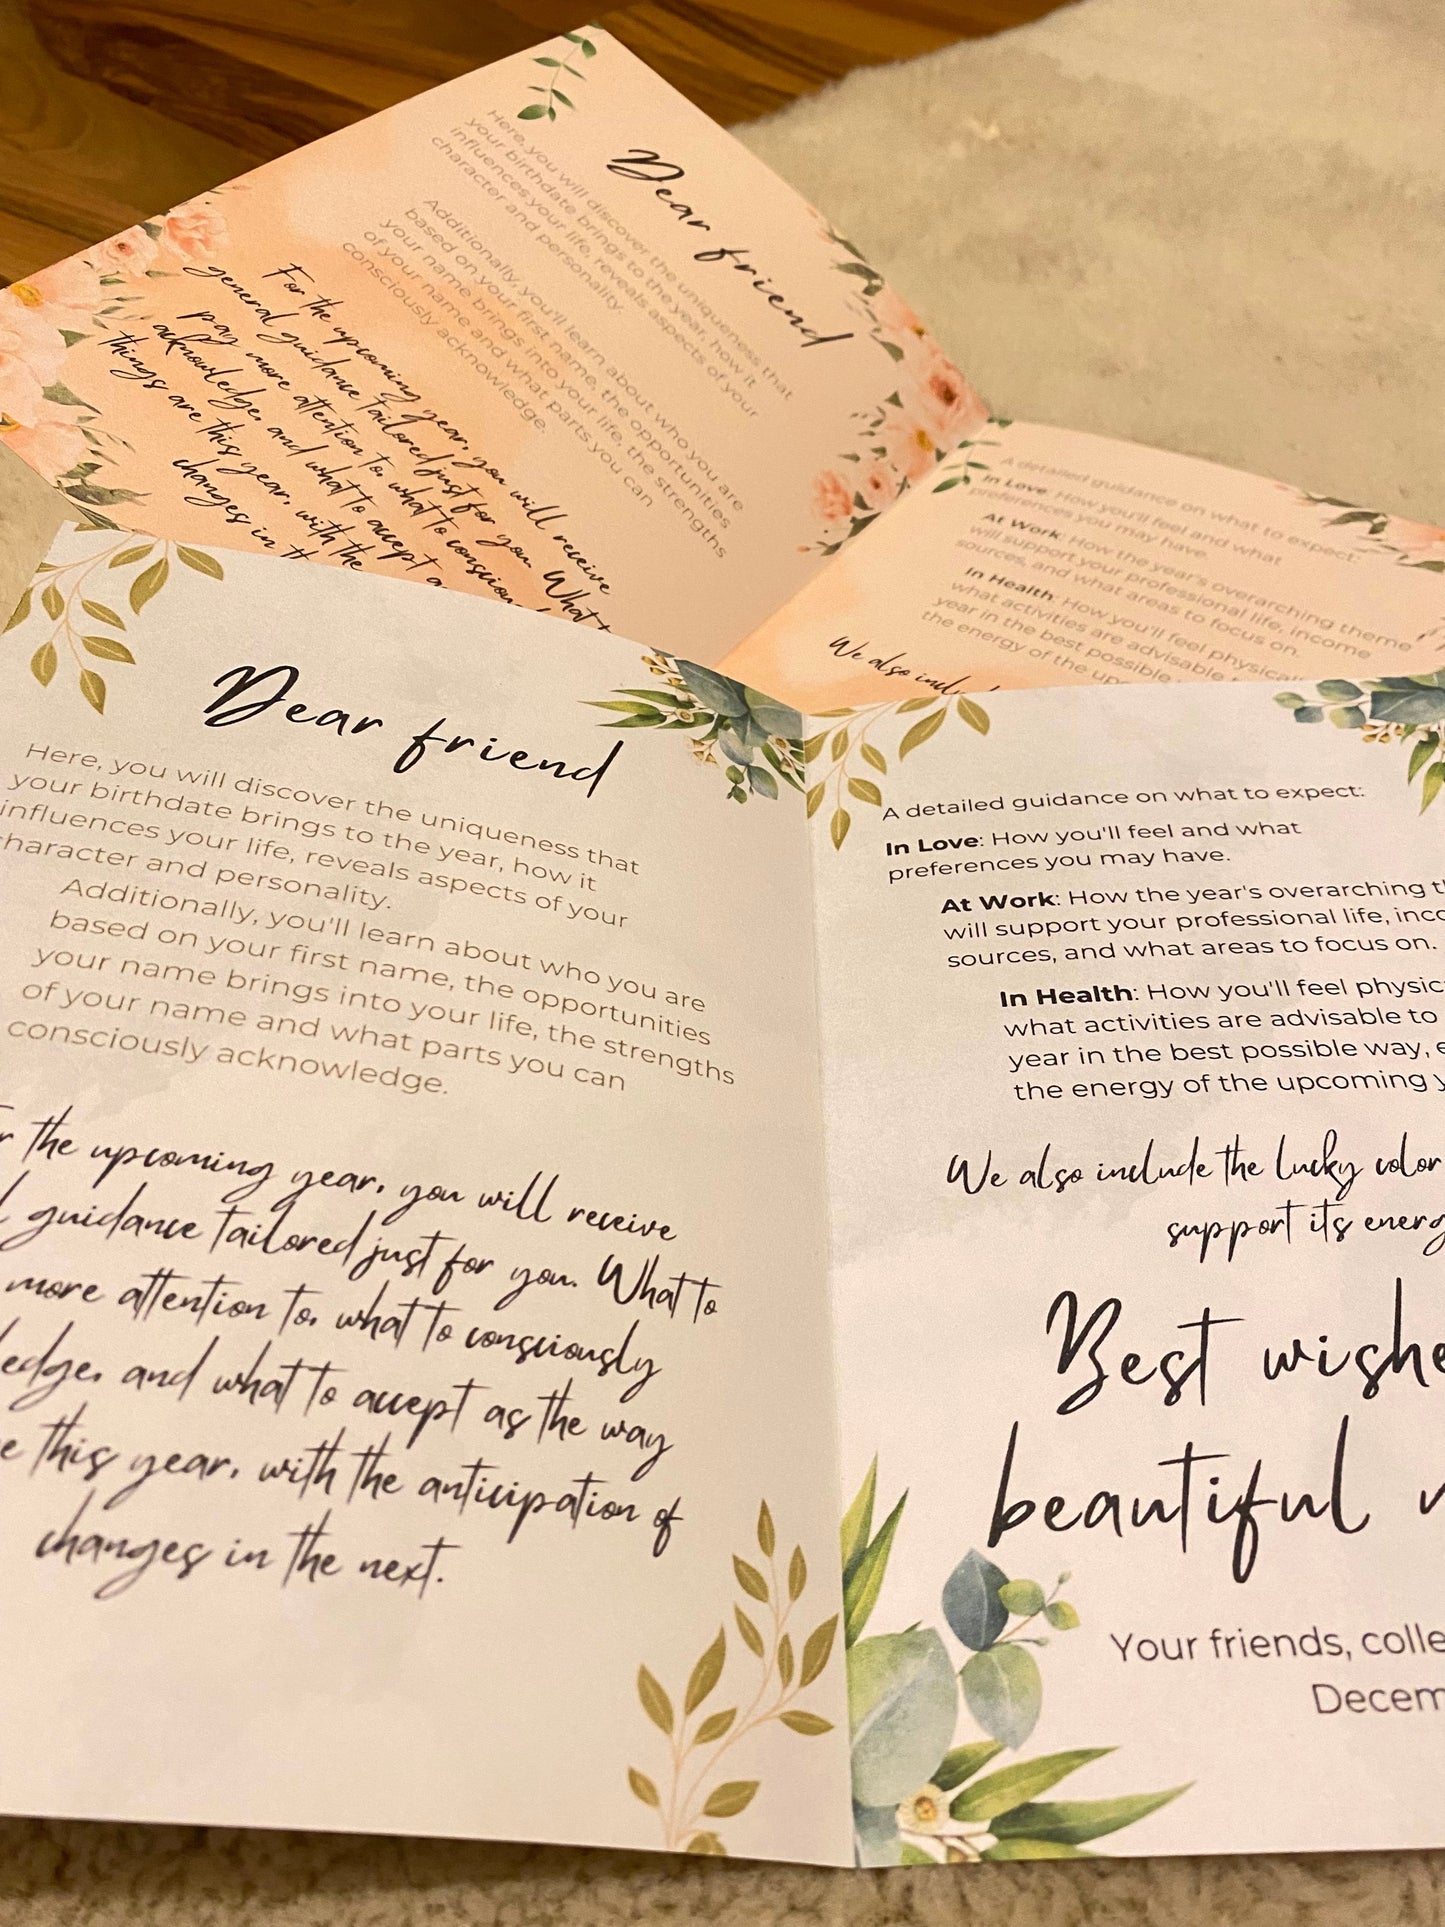 Dear friend
Here, you will discover the uniqueness that
your birthdate brings to the year, how it
influences your life, reveals aspects of your
character and personality.
Additionally, you'll learn about who you are
based on your first name, the opportunities
your name brings into your life, the strengths
of your name and what parts you can
consciously acknowledge.
For the upcoming year, you will receive
general guidance tailored just for you. What to
pay more attention to, what to conscious
acknowledge, and what to accept a
things are this year, with the
changes in th
A detailed guidance on what to expect:
In Love: How you'll feel and what
preferences you may have.
At Work: How the year's overarching theme
will support your professional life, income
sources, and what areas to focus on.
In Health: How you'll feel physical
what activities are advisable
year in the best possible
the energy of the up
We also incl
Dear friend
Here, you will discover the uniqueness that
your birthdate brings to the year, how it
influences your life, reveals aspects of your
character and personality.
Additionally, you'll learn about who you are
based on your first name, the opportunities
your name brings into your life, the strengths
of your name and what parts you can
consciously acknowledge.
r the upcoming year, you will receive
l guidance tailored just for you. What to
more attention to, what to consciously
ledge, and what to accept as the way
e this year, with the anticipation of
changes in the next.
A detailed guidance on what to expect:
In Love: How you'll feel and what
preferences you may have.
At Work: How the year's overarching t
will support your professional life, inco
sources, and what areas to focus on.
In Health: How you'll feel physic
what activities are advisable to
year in the best possible way, e
the energy of the upcoming y
We also include the lucky color
support its energ
Best wishe
beautiful
Your friends, colle
Decem